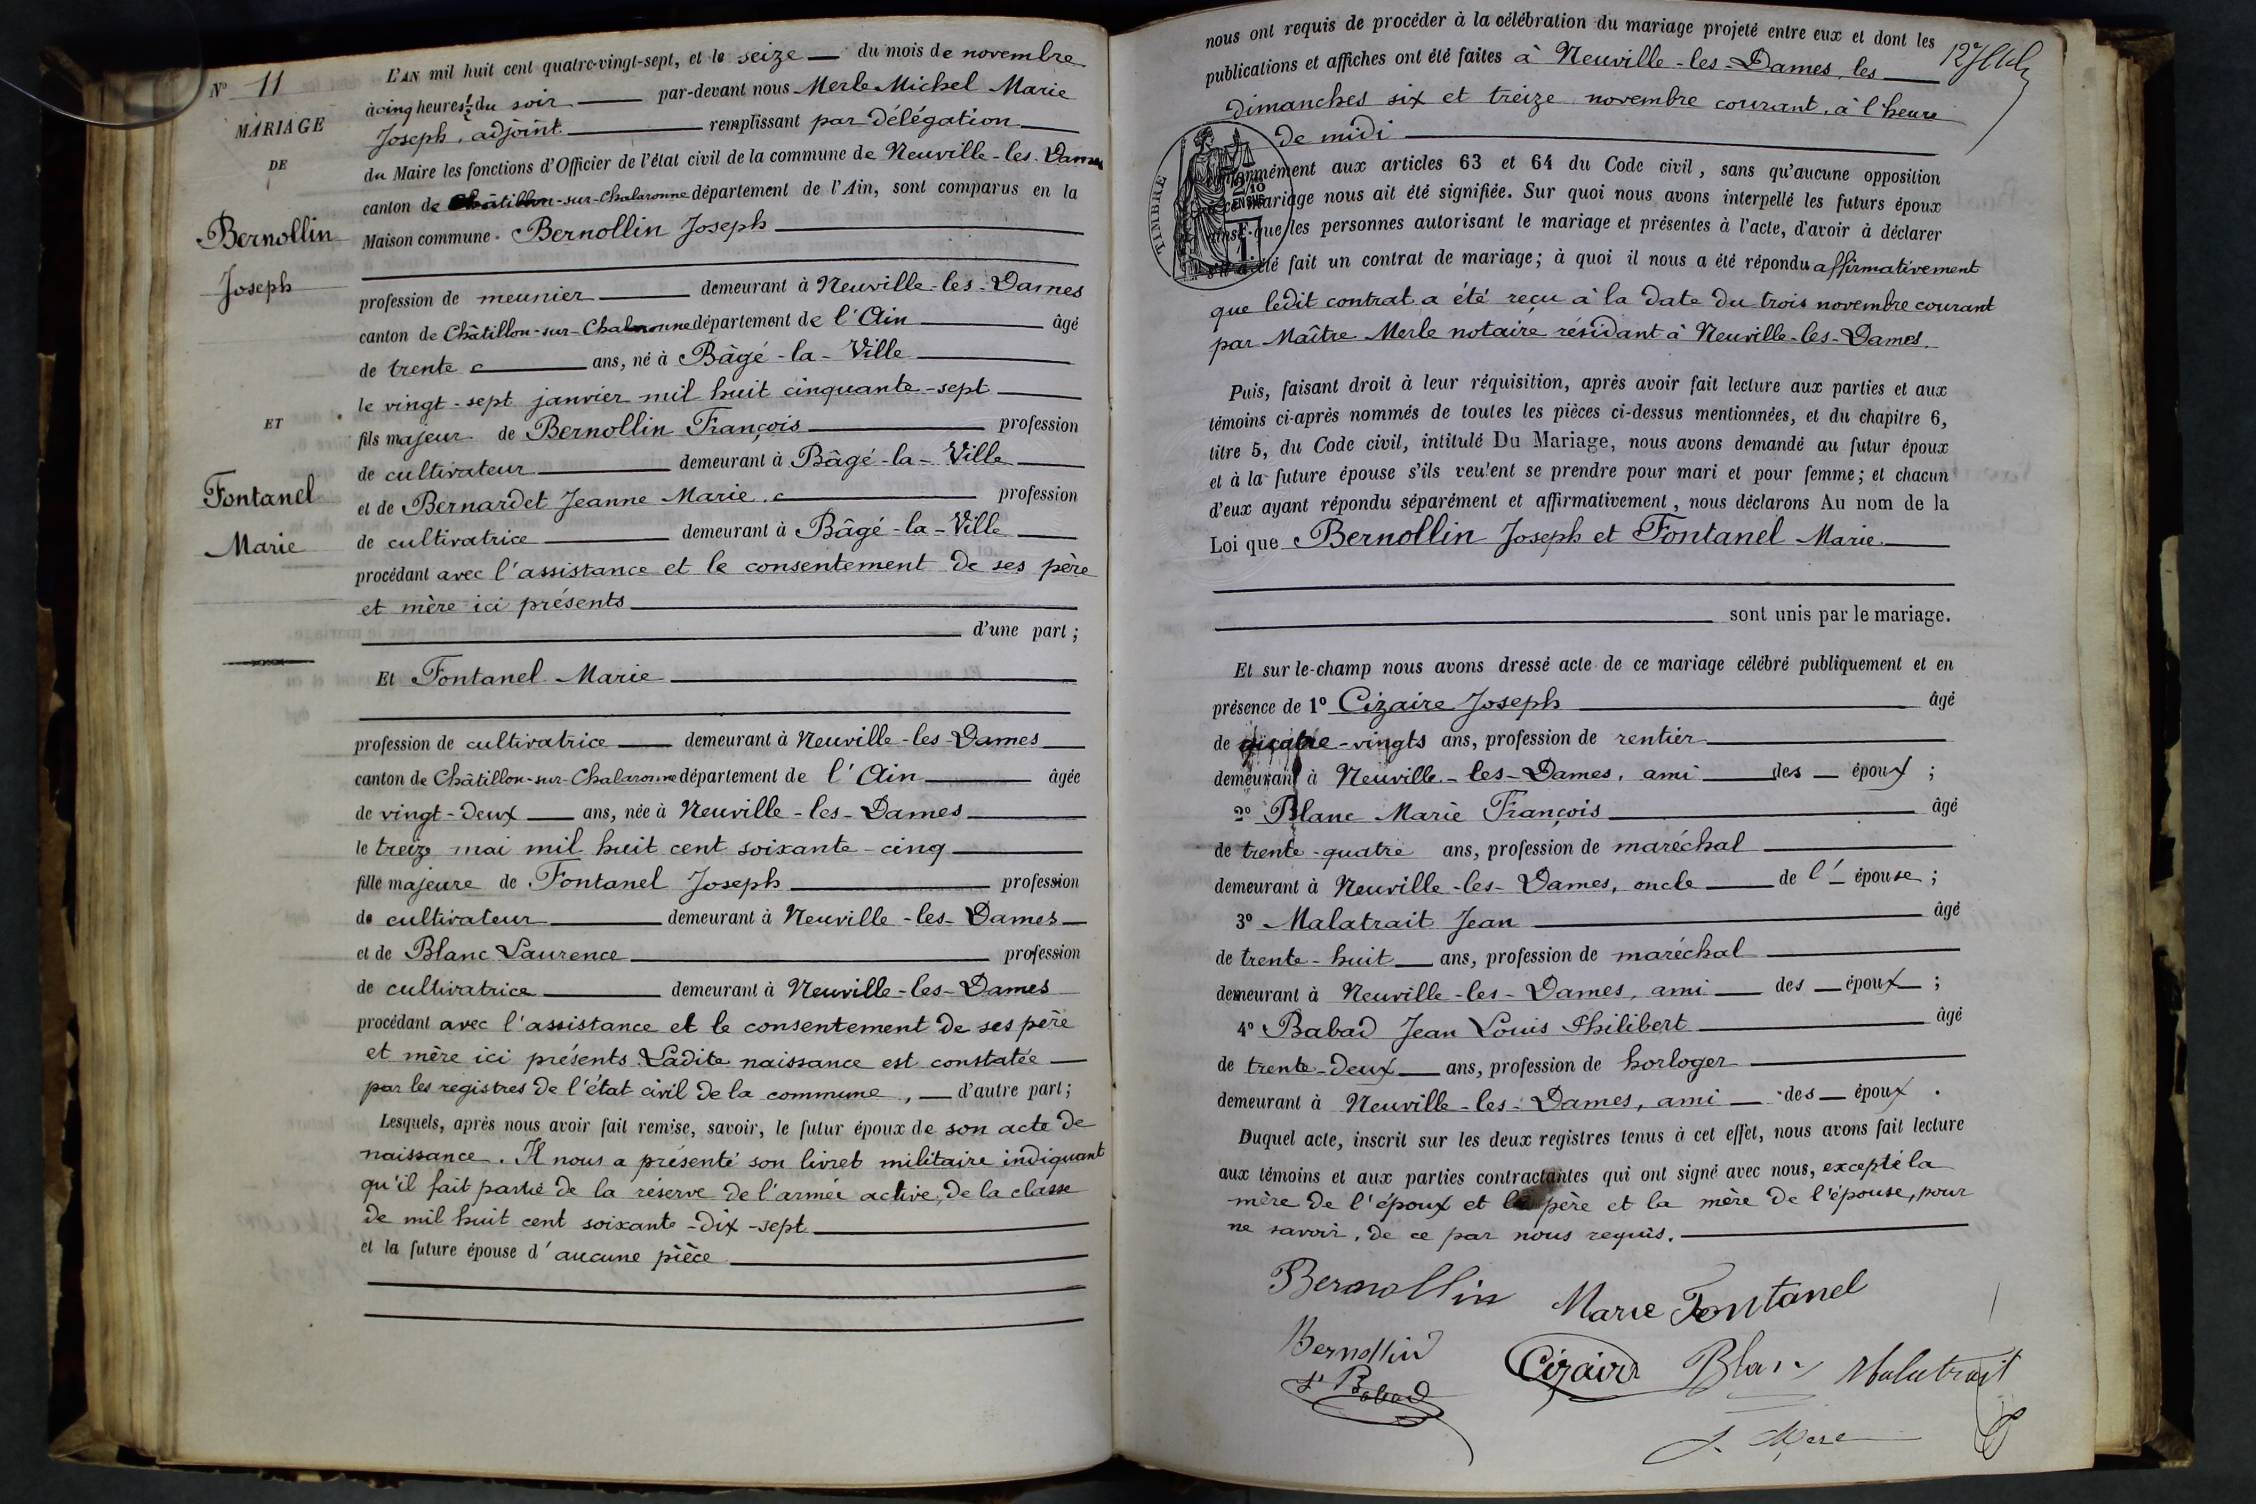 N° 11
MARIAGE
DE
Bernollin
Joseph
ET
Fontanel
Marie
L'AN mil huit cent quatre-vingt-sept, et le seize du mois de novembre
à cinq heures ½ du soir par-devant nous Merle Michel Marie
Joseph, adjoint remplissant par délégation
du Maire les fonctions d'Officier de l'état civil de la commune de Neuville-les-Dames
canton de Châtillon-sur-Chalaronne département de l'Ain, sont comparus en la
Maison commune. Bernollin Joseph
profession de meunier demeurant à Neuville-les-Dames
canton de Châtillon-sur-Chalaronne département de l'Ain âgé
de trente ans, né à Bâgé-la-Ville
le vingt-sept janvier mil huit cinquante-sept
fils majeur de Bernollin François profession
de cultivateur demeurant à Bâgé-la-Ville
et de Bernardet Jeanne Marie profession
de cultivatrice demeurant à Bâgé-la-Ville
procédant avec l'assistance et le consentement de ses père
et mère ici présents
d'une part ;
Et Fontanel Marie
profession de cultivatrice demeurant à Neuville-les-Dames
canton de Châtillon-sur-Chalaronne département de l'Ain âgée
de vingt-deux ans, née à Neuville-les-Dames
le treize mai mil huit cent soixante-cinq
fille majeure de Fontanel Joseph profession
de cultivateur demeurant à Neuville-les-Dames
et de Blanc Laurence profession
de cultivatrice demeurant à Neuville-les-Dames
procédant avec l'assistance et le consentement de ses père
et mère ici présents. Ladite naissance est constatée
par les registres de l'état civil de la commune, d'autre part ;
Lesquels, après nous avoir fait remise, savoir, le futur époux de son acte de
naissance. Il nous a présenté son livret militaire indiquant
qu'il fait partie de la réserve de l'armée active, de la classe
de mil huit cent soixante-dix-sept
et la future épouse d'aucune pièce
nous ont requis de procéder à la célébration du mariage projeté entre eux et dont les
publications et affiches ont été faites à Neuville-les-Dames, les
dimanches six et treize novembre courant, à l'heure
de midi
TIMBRE
conformément aux articles 63 et 64 du Code civil, sans qu'aucune opposition
à ce mariage nous ait été signifiée. Sur quoi nous avons interpellé les futurs époux
ainsi que les personnes autorisant le mariage et présentes à l'acte, d'avoir à déclarer
s'il a été fait un contrat de mariage; à quoi il nous a été répondu affirmativement
que ledit contrat a été reçu à la date du trois novembre courant
par Maître Merle notaire résidant à Neuville-les-Dames.
Puis, faisant droit à leur réquisition, après avoir fait lecture aux parties et aux
témoins ci-après nommés de toutes les pièces ci-dessus mentionnées, et du chapitre 6,
titre 5, du Code civil, intitulé Du Mariage, nous avons demandé au futur époux
et à la future épouse s'ils veulent se prendre pour mari et pour femme; et chacun
d'eux ayant répondu séparément et affirmativement, nous déclarons Au nom de la
Loi que Bernollin Joseph et Fontanel Marie
sont unis par le mariage.
Et sur-le-champ nous avons dressé acte de ce mariage célébré publiquement et en
présence de 1° Cizaire Joseph âgé
de quatre-vingts ans, profession de rentier
demeurant à Neuville-les-Dames, ami des époux ;
2° Blanc Marie François âgé
de trente-quatre ans, profession de maréchal
demeurant à Neuville-les-Dames, oncle de l'épouse ;
3° Malatrait Jean âgé
de trente-huit ans, profession de maréchal
demeurant à Neuville-les-Dames, ami des époux ;
4° Babad Jean Louis Philibert âgé
de trente-deux ans, profession de horloger
demeurant à Neuville-les-Dames, ami des époux.
Duquel acte, inscrit sur les deux registres tenus à cet effet, nous avons fait lecture
aux témoins et aux parties contractantes qui ont signé avec nous, excepté la
mère de l'époux et le père et la mère de l'épouse, pour
ne savoir, de ce par nous requis.
Bernollin Marie Fontanel
Bernollin Cizaire Blanc Malatrait
Babad